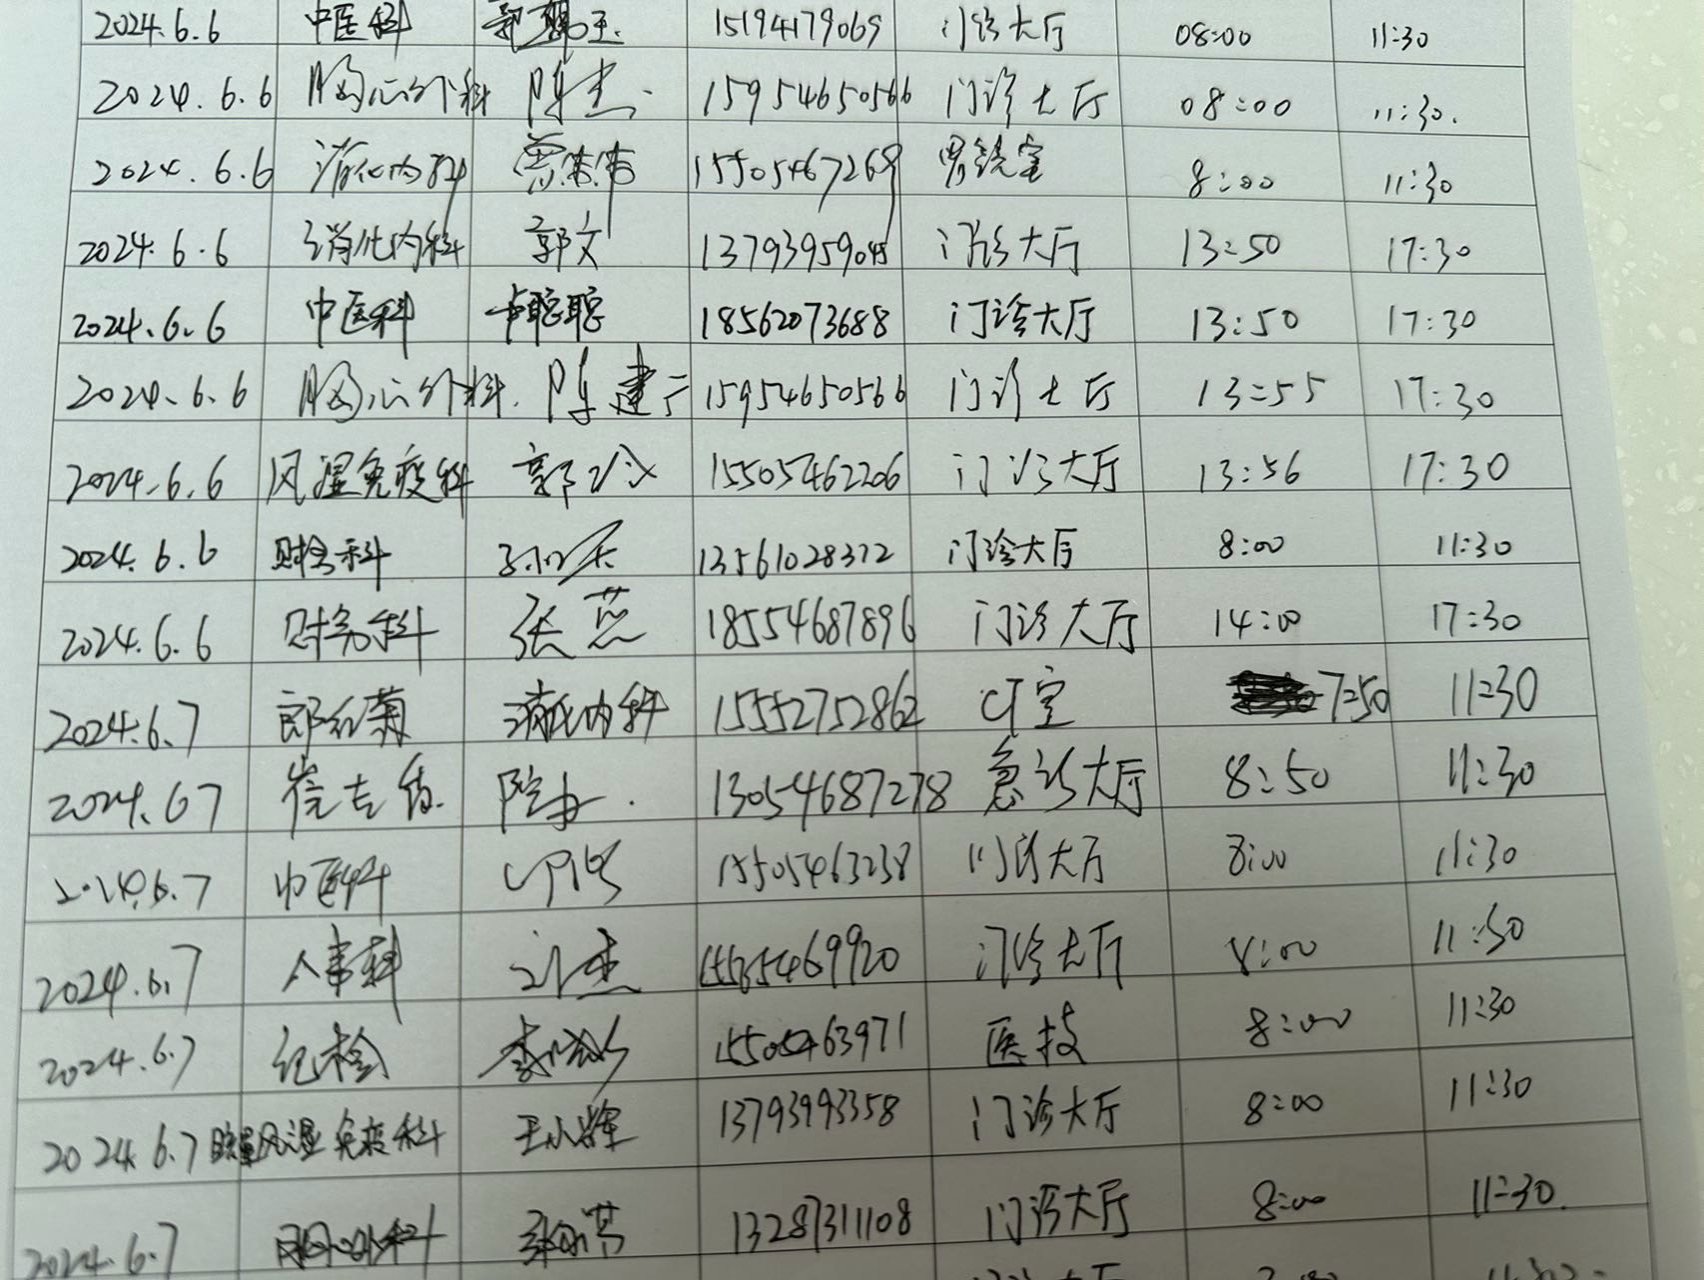 2024.6.6 中医科 15194179069 门诊大厅 08:00 11:30
2024.6.6 胸心外科 陈杰 15954650566 门诊大厅 08:00 11:30.
2024.6.6 消化内科 15505467269 胃镜室 8:00 11:30
2024.6.6 消化内科 郭文 13793959045 门诊大厅 13:50 17:30
2024.6.6 中医科 卡聪聪 18562073688 门诊大厅 13:50 17:30
2024.6.6 胸心外科. 陈建 15954650566 门诊大厅 13:55 17:30
2024.6.6 风湿免疫科 郭 15505462206 门诊大厅 13:56 17:30
2024.6.6 财务科 13561028312 门诊大厅 8:00 11:30
2024.6.6 财务科 张蕊 18554687896 门诊大厅 14:00 17:30
2024.6.7 郎红菊 消化内科 15552752862 CT室 7:50 11:30
2024.67 崔吉 院办. 13054687278 急诊大厅 8:50 11:30
2.24.6.7 中医科 15505463238 门诊大厅 8:00 11:30
2024.6.7 人事科 刘杰 门诊大厅 8:00 11:50
2024.6.7 纪检 李 15505463971 医技 8:00 11:30
2024.6.7 风湿免疫科 王小辉 13793993358 门诊大厅 8:00 11:30
2024.6.7 13287311108 门诊大厅 8:00 11:30.